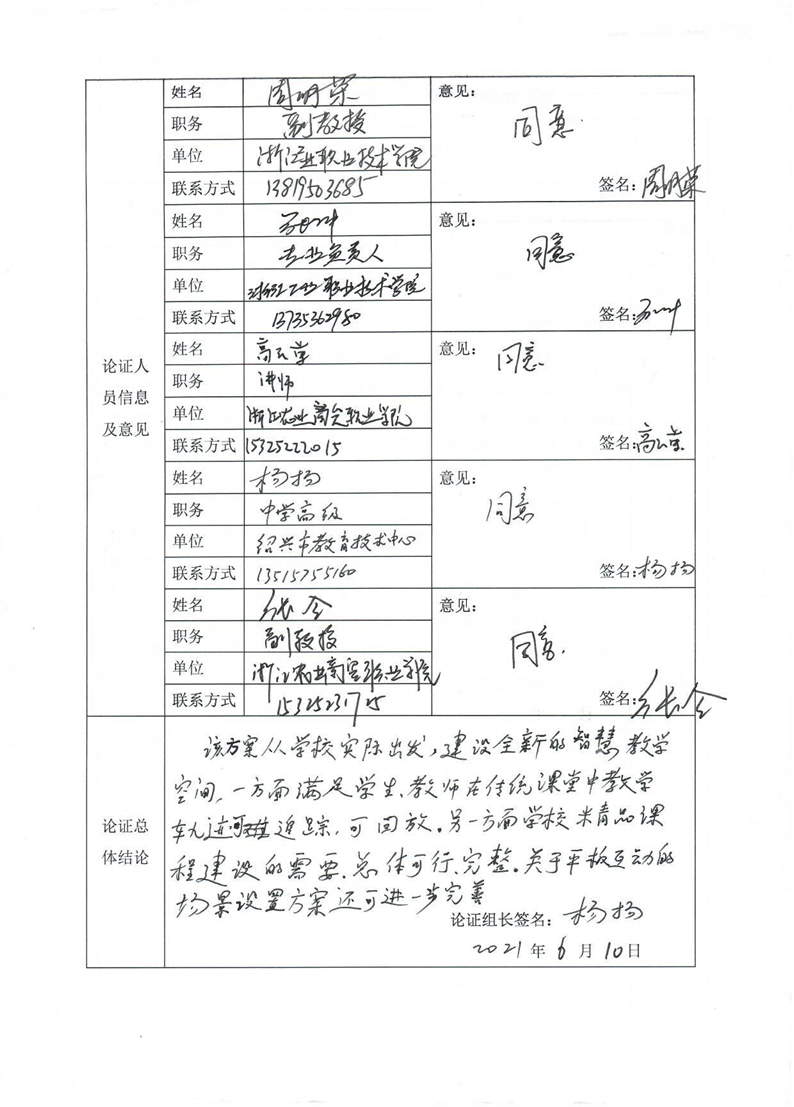 姓名 周明荣 意见：
职务 副教授 同意
单位 浙江工业职业技术学院
联系方式 13819503685 签名：周明荣
姓名 意见：
职务 专业负责人 同意
单位 浙江工业职业技术学院
联系方式 13735362980 签名：
论证人
员信息
及意见
姓名 高 意见：
职务 讲师 同意
单位 浙江农业商贸职业学院
联系方式 15325222015 签名：高
姓名 杨扬 意见：
职务 中学高级 同意
单位 绍兴市教育技术中心
联系方式 13515755160 签名：杨扬
姓名 张全 意见：
职务 副教授 同意
单位 浙江农业商贸职业学院
联系方式 签名：张全
论证总
体结论
该方案从学校实际出发，建设全新的智慧教学
空间，一方面满足学生、教师在传统课堂中教学
轨迹追踪，可回放。另一方面学校精品课
程建设的需要，总体可行、完整。关于平板互动的
场景设置方案还可进一步完善
论证组长签名：杨扬
2021年6月10日